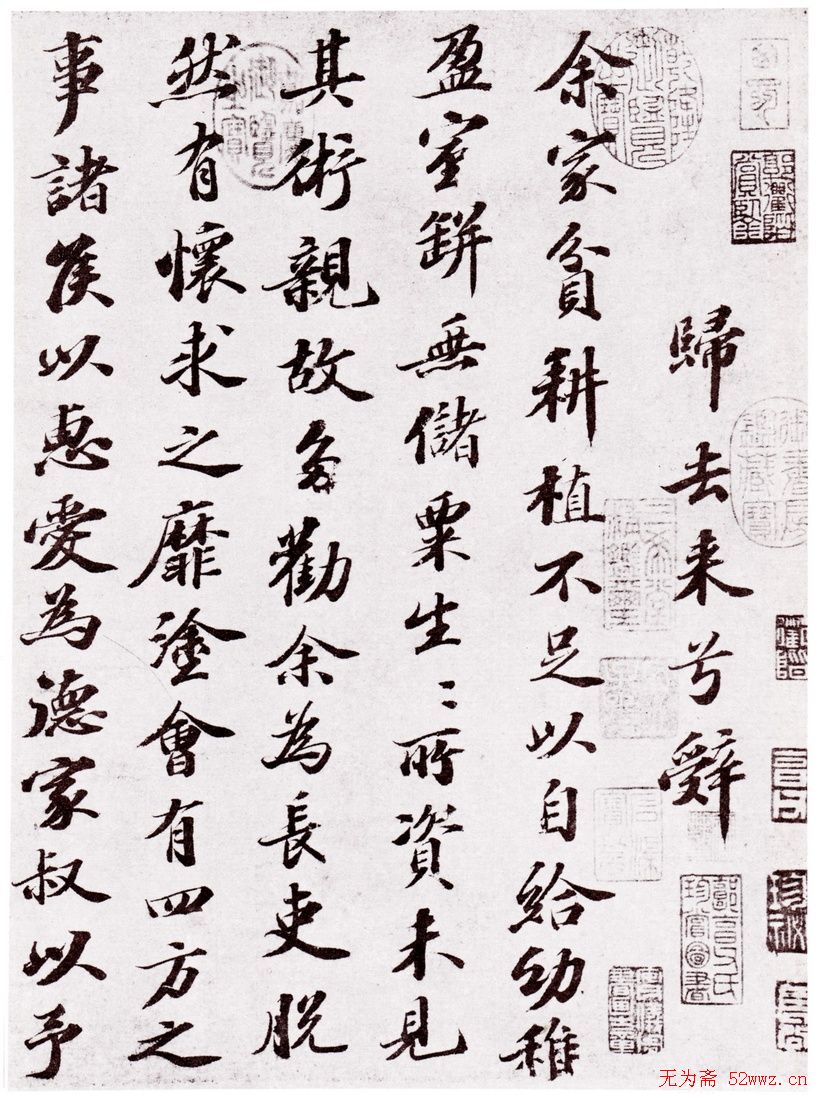 歸去来兮辭
余家貧耕植不足以自給幼稚
盈室缾無儲粟生〻所資未見
其術親故多勸余為長吏脱
然有懷求之靡塗會有四方之
事諸侯以惠愛為德家叔以予
御書房鑑藏寶
三希堂精鑑璽
无为斋 52wwz.cn